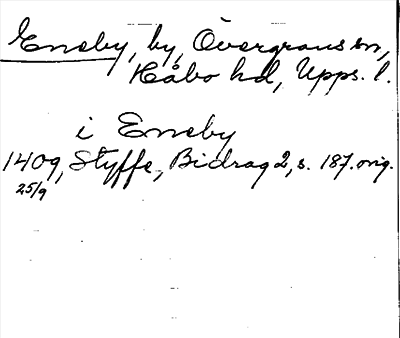 Eneby, by, Övergrans sn,
Håbo hd, Upps. l.
i Eneby
1409, Styffe, Bidrag 2, s. 187. orig.
25/9